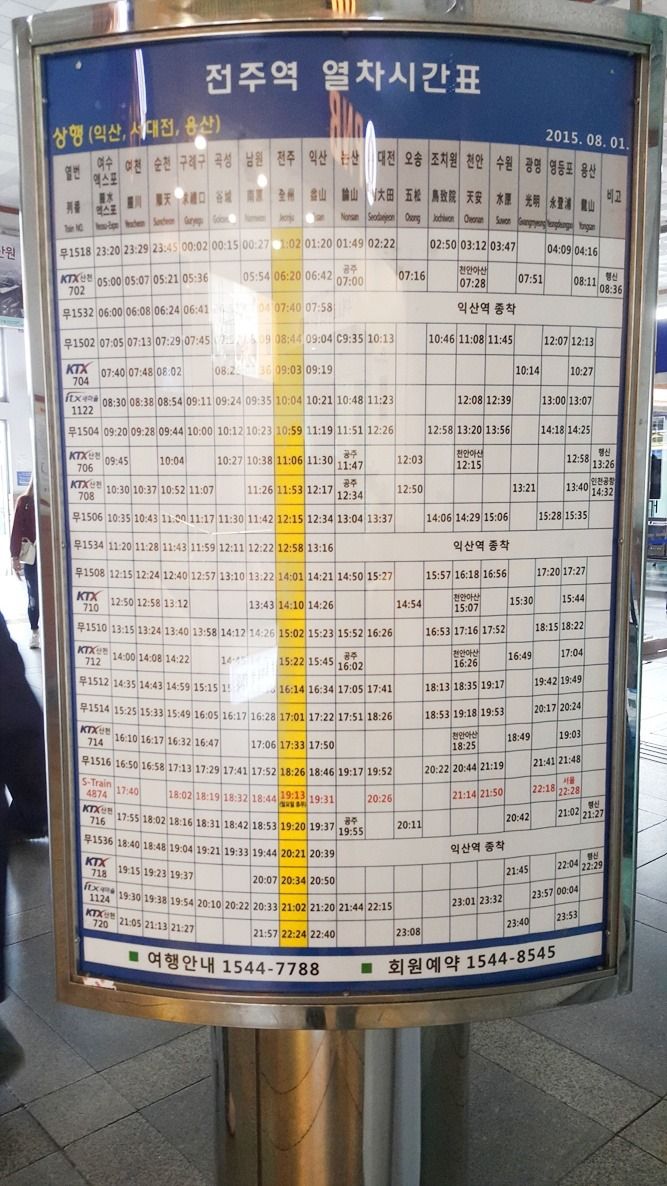 전주역 열차시간표
상행 (익산, 서대전, 용산)
2015. 08. 01.
열번 여수엑스포 여천 순천 구례구 곡성 남원 전주 익산 논산 서대전 오송 조치원 천안 수원 광명 영등포 용산 비고
列車 麗水엑스포 麗川 順天 求禮口 谷城 南原 全州 益山 論山 西大田 五松 鳥致院 天安 水原 光明 永登浦 龍山
Train NO. Yeosu-Expo Yeocheon Suncheon Guryegu Gokseong Namwon Jeonju Iksan Nonsan Seodaejeon Osong Jochiwon Cheonan Suwon Gwangmyeong Yeongdeungpo Yongsan
무1518 23:20 23:29 23:45 00:02 00:15 00:27 01:02 01:20 01:49 02:22 02:50 03:12 03:47 04:09 04:16
KTX산천 702 05:00 05:07 05:21 05:36 05:54 06:20 06:42 공주 07:00 07:16 천안아산 07:28 07:51 08:11 행신 08:36
무1532 06:00 06:08 06:24 06:41 07:40 07:58 익산역 종착
무1502 07:05 07:13 07:29 07:45 08:44 09:04 09:35 10:13 10:46 11:08 11:45 12:07 12:13
KTX 704 07:40 07:48 08:02 09:03 09:19 10:14 10:27
ITX새마을 1122 08:30 08:38 08:54 09:11 09:24 09:35 10:04 10:21 10:48 11:23 12:08 12:39 13:00 13:07
무1504 09:20 09:28 09:44 10:00 10:12 10:23 10:59 11:19 11:51 12:26 12:58 13:20 13:56 14:18 14:25
KTX산천 706 09:45 10:04 10:27 10:38 11:06 11:30 공주 11:47 12:03 천안아산 12:15 12:58 행신 13:26
KTX산천 708 10:30 10:37 10:52 11:07 11:26 11:53 12:17 공주 12:34 12:50 13:21 13:40 인천공항 14:32
무1506 10:35 10:43 11:00 11:17 11:30 11:42 12:15 12:34 13:04 13:37 14:06 14:29 15:06 15:28 15:35
무1534 11:20 11:28 11:43 11:59 12:11 12:22 12:58 13:16 익산역 종착
무1508 12:15 12:24 12:40 12:57 13:10 13:22 14:01 14:21 14:50 15:27 15:57 16:18 16:56 17:20 17:27
KTX 710 12:50 12:58 13:12 13:43 14:10 14:26 14:54 천안아산 15:07 15:30 15:44
무1510 13:15 13:24 13:40 13:58 14:12 14:26 15:02 15:23 15:52 16:26 16:53 17:16 17:52 18:15 18:22
KTX산천 712 14:00 14:08 14:22 15:22 15:45 공주 16:02 천안아산 16:26 16:49 17:04
무1512 14:35 14:43 14:59 15:15 16:14 16:34 17:05 17:41 18:13 18:35 19:17 19:42 19:49
무1514 15:25 15:33 15:49 16:05 16:17 16:28 17:01 17:22 17:51 18:26 18:53 19:18 19:53 20:17 20:24
KTX산천 714 16:10 16:17 16:32 16:47 17:06 17:33 17:50 천안아산 18:25 18:49 19:03
무1516 16:50 16:58 17:13 17:29 17:41 17:52 18:26 18:46 19:17 19:52 20:22 20:44 21:19 21:41 21:48
S-Train 4874 17:40 18:02 18:19 18:32 18:44 19:13 19:31 20:26 21:14 21:50 22:18 서울 22:28
KTX산천 716 17:55 18:02 18:16 18:31 18:42 18:53 19:20 19:37 공주 19:55 20:11 20:42 21:02 행신 21:27
무1536 18:40 18:48 19:04 19:21 19:33 19:44 20:21 20:39 익산역 종착
KTX 718 19:15 19:23 19:37 20:07 20:34 20:50 21:45 22:04 행신 22:29
ITX새마을 1124 19:30 19:38 19:54 20:10 20:22 20:33 21:02 21:20 21:44 22:15 23:01 23:32 23:57 00:04
KTX산천 720 21:05 21:13 21:27 21:57 22:24 22:40 23:08 23:40 23:53
■ 여행안내 1544-7788 ■ 회원예약 1544-8545